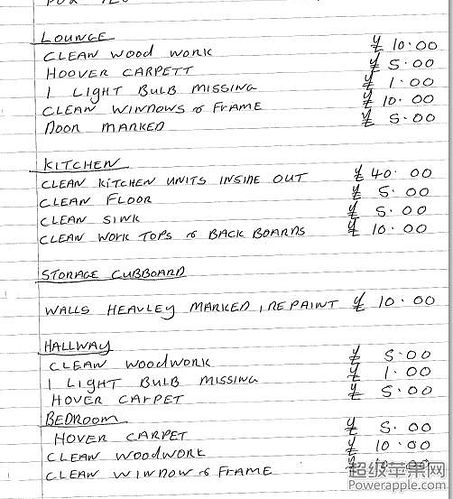 LOUNGE
CLEAN WOOD WORK £ 10.00
HOOVER CARPETT £ 5.00
1 LIGHT BULB MISSING £ 1.00
CLEAN WINDOWS & FRAME £ 10.00
DOOR MARKED £ 5.00
KITCHEN
CLEAN KITCHEN UNITS INSIDE OUT £ 40.00
CLEAN FLOOR £ 5.00
CLEAN SINK £ 5.00
CLEAN WORK TOPS & BACK BOARDS £ 10.00
STORAGE CUBBOARD
WALLS HEAVLEY MARKED, REPAINT £ 10.00
HALLWAY
CLEAN WOODWORK £ 5.00
1 LIGHT BULB MISSING £ 1.00
HOVER CARPET £ 5.00
BEDROOM
HOVER CARPET £ 5.00
CLEAN WOODWORK £ 10.00
CLEAN WINDOW & FRAME
超级苹果网
Powerapple.com